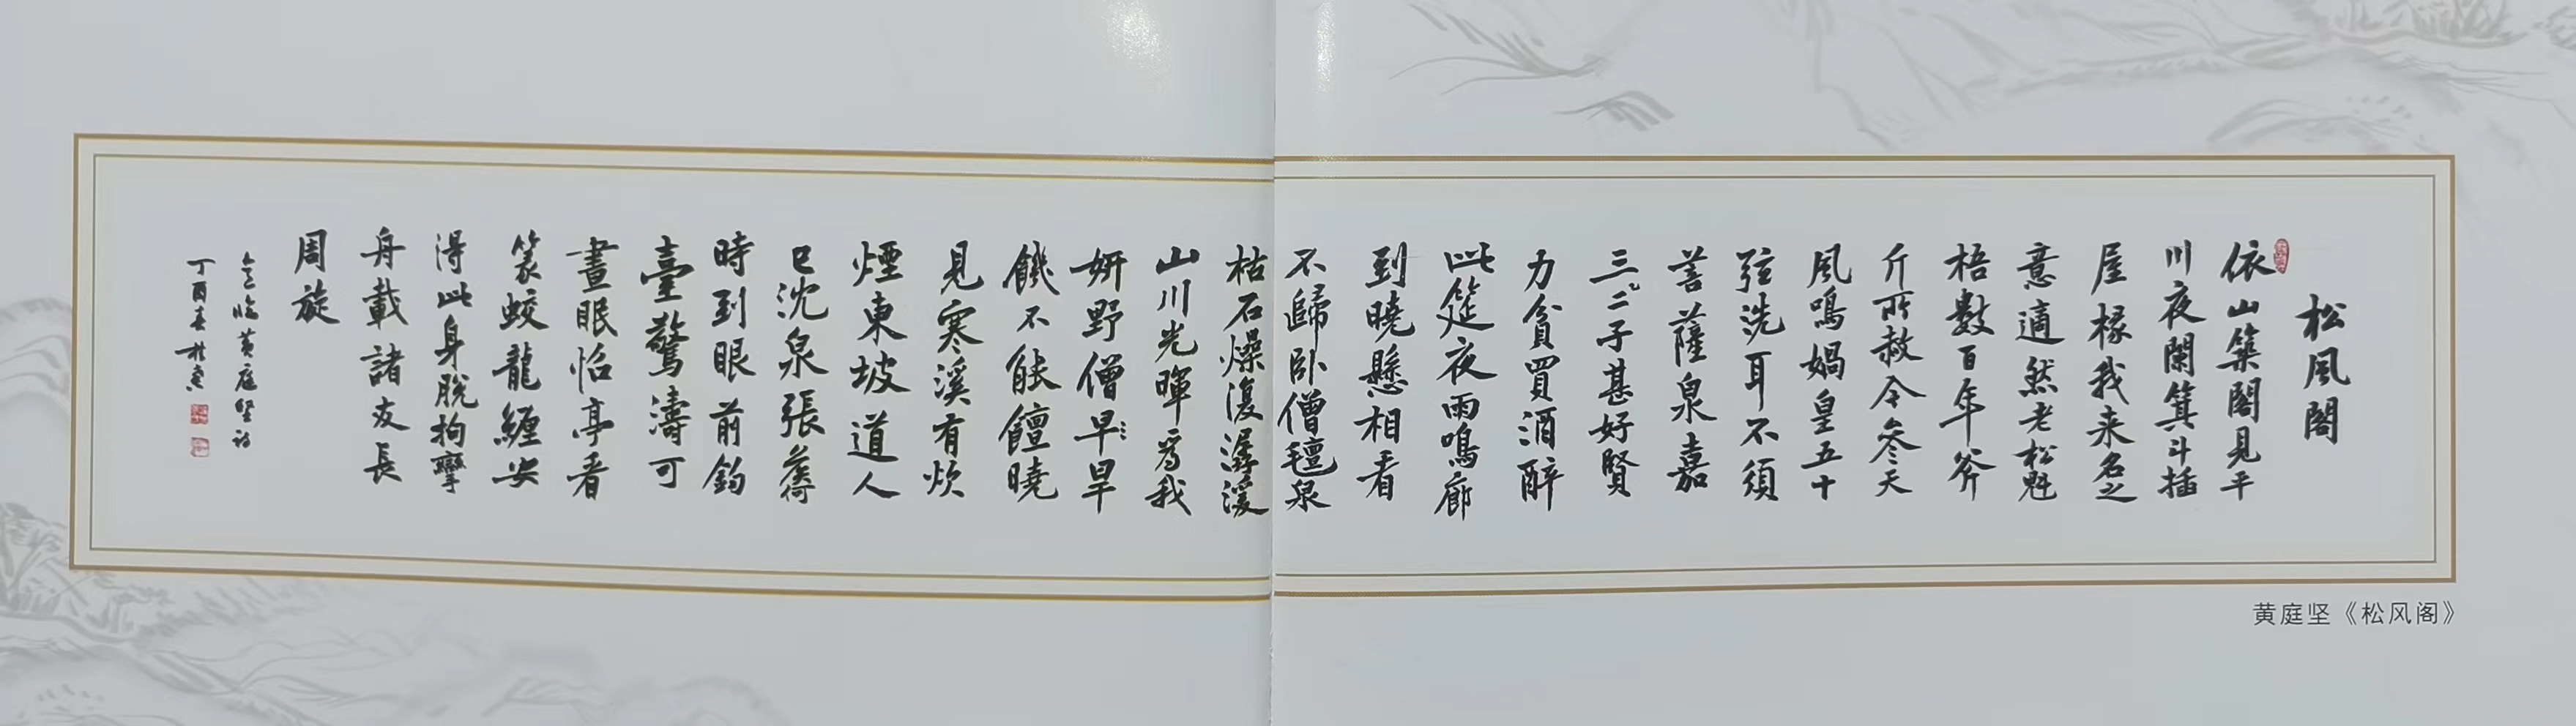 松風閣
依山築閣見平
川夜闌箕斗插
屋椽我来名之
意適然老松魁
梧數百年斧
斤所赦今參天
風鳴媧皇五十
弦洗耳不須
菩薩泉嘉
三二子甚好賢
力貧買酒醉
此筵夜雨鳴廊
到曉懸相看
不歸卧僧氊泉
枯石燥復潺湲
山川光暉為我
妍野僧早旱
饑不能饘曉
見寒溪有炊
煙東坡道人
已沈泉張矦何
時到眼前釣
臺驚濤可
晝眠怡亭看
篆蛟龍纏安
得此身脫拘攣
舟載諸友長
周旋
臨黃庭堅詩
丁酉春
黄庭坚《松风阁》